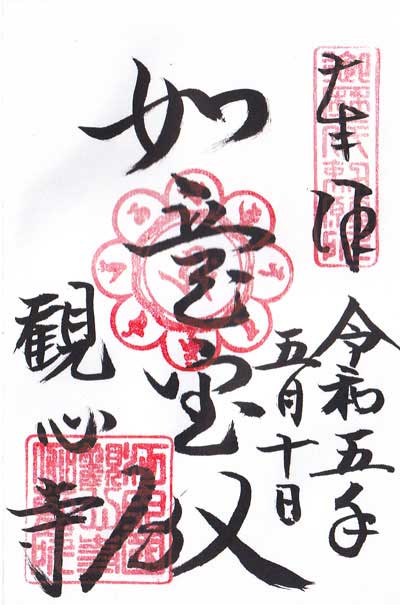 奉拝
令和五年
五月十日
如意宝殿
観心寺